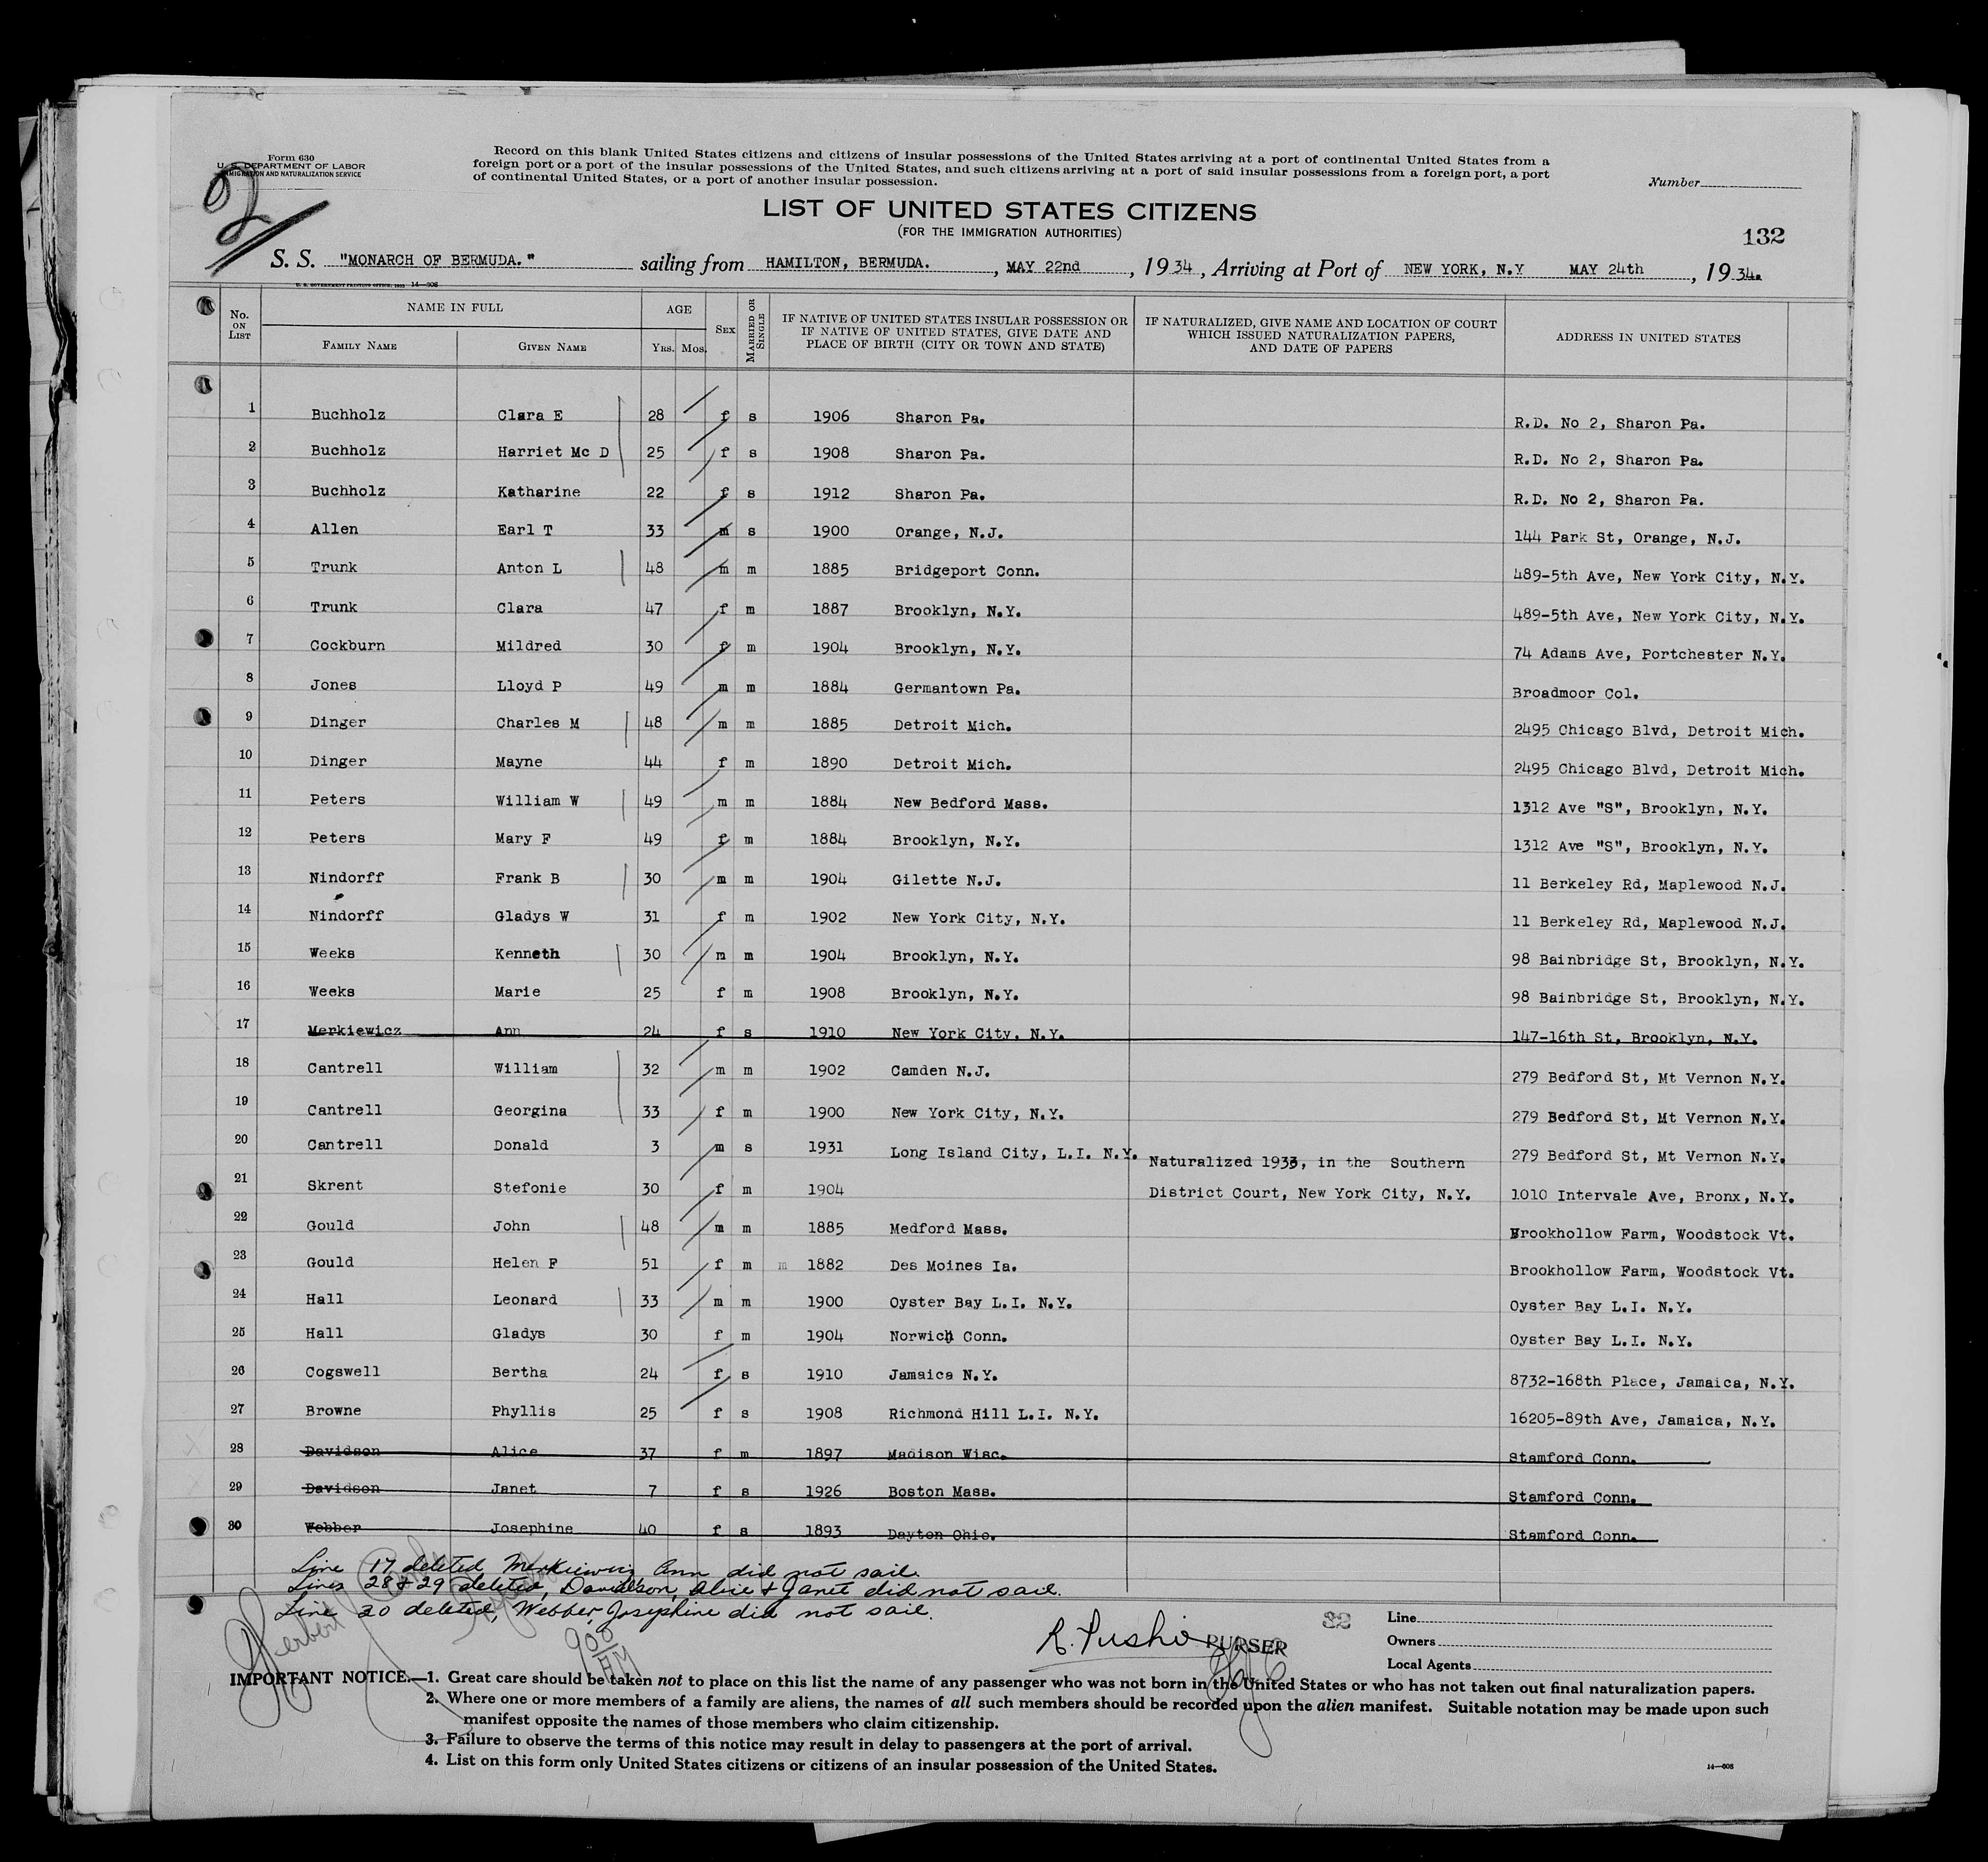 Form 630
U. S. DEPARTMENT OF LABOR
IMMIGRATION AND NATURALIZATION SERVICE
2
Record on this blank United States citizens and citizens of insular possessions of the United States arriving at a port of continental United States from a
foreign port or a port of the insular possessions of the United States, and such citizens arriving at a port of said insular possessions from a foreign port, a port
of continental United States, or a port of another insular possession.
Number
LIST OF UNITED STATES CITIZENS
(FOR THE IMMIGRATION AUTHORITIES)
132
S. S. "MONARCH OF BERMUDA." sailing from HAMILTON, BERMUDA. , MAY 22nd , 1934, Arriving at Port of NEW YORK, N.Y MAY 24th , 1934.
U. S. GOVERNMENT PRINTING OFFICE: 1933 14—608
No. ON LIST NAME IN FULL FAMILY NAME GIVEN NAME AGE YRS. MOS. SEX MARRIED OR SINGLE IF NATIVE OF UNITED STATES INSULAR POSSESSION OR IF NATIVE OF UNITED STATES, GIVE DATE AND PLACE OF BIRTH (CITY OR TOWN AND STATE) IF NATURALIZED, GIVE NAME AND LOCATION OF COURT WHICH ISSUED NATURALIZATION PAPERS, AND DATE OF PAPERS ADDRESS IN UNITED STATES
1 Buchholz Clara E 28 f s 1906 Sharon Pa. R.D. No 2, Sharon Pa.
2 Buchholz Harriet Mc D 25 f s 1908 Sharon Pa. R.D. No 2, Sharon Pa.
3 Buchholz Katharine 22 f s 1912 Sharon Pa. R.D. No 2, Sharon Pa.
4 Allen Earl T 33 m s 1900 Orange, N.J. 144 Park St, Orange, N.J.
5 Trunk Anton L 48 m m 1885 Bridgeport Conn. 489-5th Ave, New York City, N.Y.
6 Trunk Clara 47 f m 1887 Brooklyn, N.Y. 489-5th Ave, New York City, N.Y.
7 Cockburn Mildred 30 f m 1904 Brooklyn, N.Y. 74 Adams Ave, Portchester N.Y.
8 Jones Lloyd P 49 m m 1884 Germantown Pa. Broadmoor Col.
9 Dinger Charles M 48 m m 1885 Detroit Mich. 2495 Chicago Blvd, Detroit Mich.
10 Dinger Mayne 44 f m 1890 Detroit Mich. 2495 Chicago Blvd, Detroit Mich.
11 Peters William W 49 m m 1884 New Bedford Mass. 1312 Ave "S", Brooklyn, N.Y.
12 Peters Mary F 49 f m 1884 Brooklyn, N.Y. 1312 Ave "S", Brooklyn, N.Y.
13 Nindorff Frank B 30 m m 1904 Gilette N.J. 11 Berkeley Rd, Maplewood N.J.
14 Nindorff Gladys W 31 f m 1902 New York City, N.Y. 11 Berkeley Rd, Maplewood N.J.
15 Weeks Kenneth 30 m m 1904 Brooklyn, N.Y. 98 Bainbridge St, Brooklyn, N.Y.
16 Weeks Marie 25 f m 1908 Brooklyn, N.Y. 98 Bainbridge St, Brooklyn, N.Y.
17 Merkiewicz Ann 24 f s 1910 New York City, N.Y. 147-16th St, Brooklyn, N.Y.
18 Cantrell William 32 m m 1902 Camden N.J. 279 Bedford St, Mt Vernon N.Y.
19 Cantrell Georgina 33 f m 1900 New York City, N.Y. 279 Bedford St, Mt Vernon N.Y.
20 Cantrell Donald 3 m s 1931 Long Island City, L.I. N.Y. 279 Bedford St, Mt Vernon N.Y.
Naturalized 1933, in the Southern
21 Skrent Stefonie 30 f m 1904 District Court, New York City, N.Y. 1010 Intervale Ave, Bronx, N.Y.
22 Gould John 48 m m 1885 Medford Mass. Brookhollow Farm, Woodstock Vt.
23 Gould Helen F 51 f m m 1882 Des Moines Ia. Brookhollow Farm, Woodstock Vt.
24 Hall Leonard 33 m m 1900 Oyster Bay L.I. N.Y. Oyster Bay L.I. N.Y.
25 Hall Gladys 30 f m 1904 Norwich Conn. Oyster Bay L.I. N.Y.
26 Cogswell Bertha 24 f s 1910 Jamaica N.Y. 8732-168th Place, Jamaica, N.Y.
27 Browne Phyllis 25 f s 1908 Richmond Hill L.I. N.Y. 16205-89th Ave, Jamaica, N.Y.
28 Davidson Alice 37 f m 1897 Madison Wisc. Stamford Conn.
29 Davidson Janet 7 f s 1926 Boston Mass. Stamford Conn.
30 Webber Josephine 40 f s 1893 Dayton Ohio. Stamford Conn.
Line 17 deleted, Merkiewicz Ann did not sail.
Lines 28 & 29 deleted, Davidson, Alice & Janet did not sail.
Line 30 deleted, Webber, Josephine did not sail.
Herbert
900 AM
PURSER
32
Line
Owners
Local Agents
IMPORTANT NOTICE.—1. Great care should be taken not to place on this list the name of any passenger who was not born in the United States or who has not taken out final naturalization papers.
2. Where one or more members of a family are aliens, the names of all such members should be recorded upon the alien manifest. Suitable notation may be made upon such
manifest opposite the names of those members who claim citizenship.
3. Failure to observe the terms of this notice may result in delay to passengers at the port of arrival.
4. List on this form only United States citizens or citizens of an insular possession of the United States.
14—608